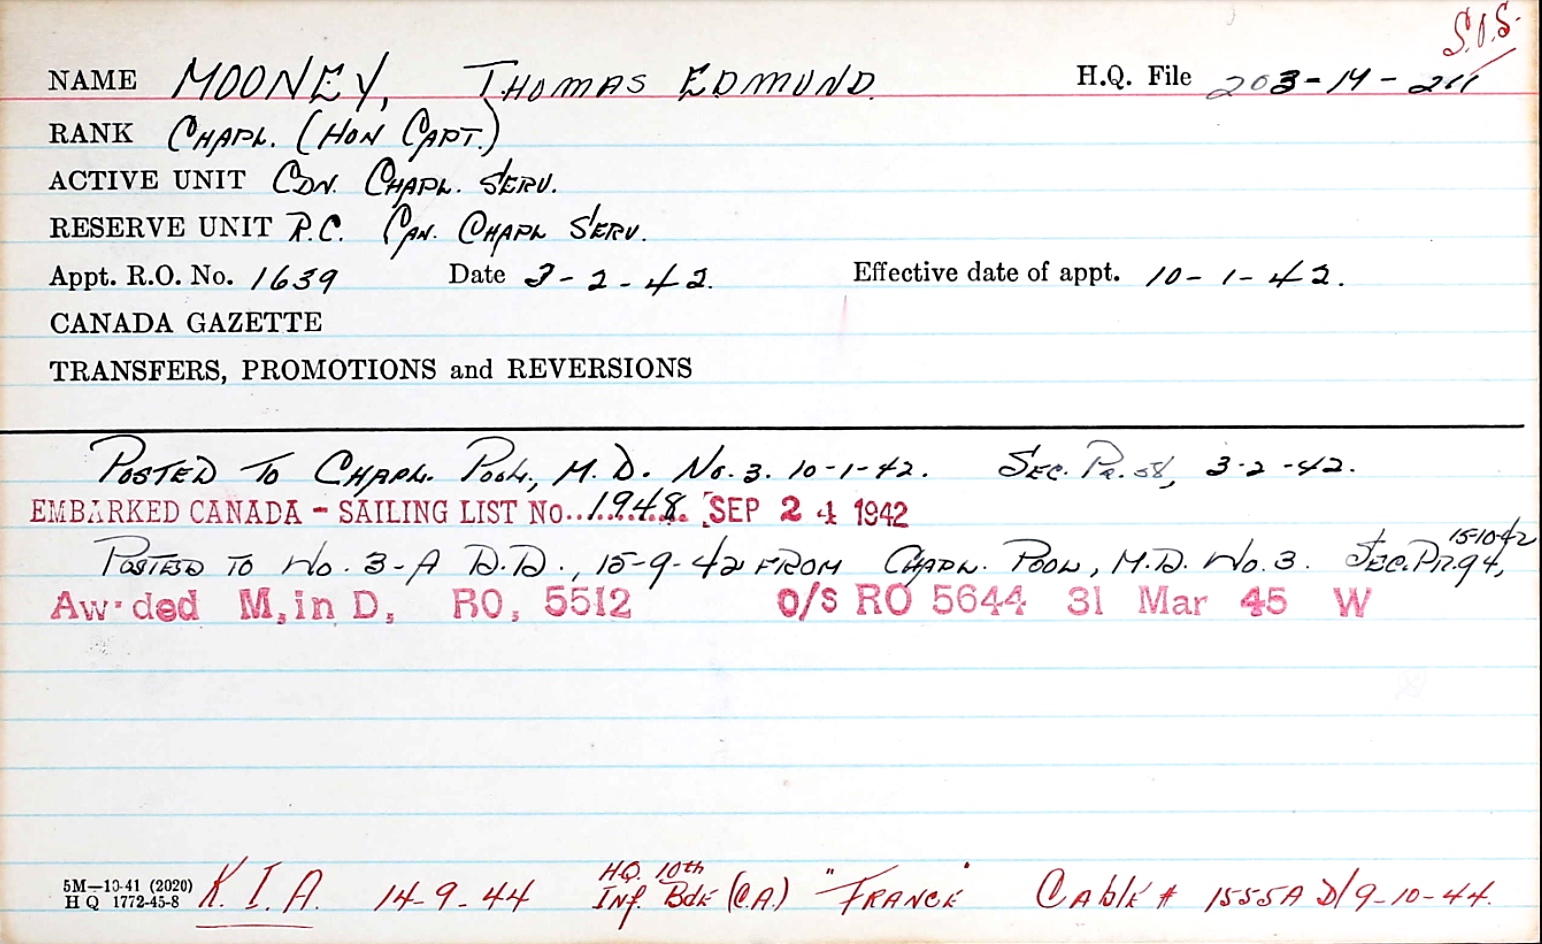 S.O.S.
NAME MOONEY, THOMAS EDMUND. H.Q. File 203-14-211
RANK CHAPL. (HON CAPT.)
ACTIVE UNIT CDN. CHAPL. SERV.
RESERVE UNIT R.C. CAN. CHAPL SERV.
Appt. R.O. No. 1639 Date 3-2-42. Effective date of appt. 10-1-42.
CANADA GAZETTE
TRANSFERS, PROMOTIONS and REVERSIONS
POSTED TO CHAPL. POOL, M.D. No. 3. 10-1-42. SEC. Pr. 58, 3-2-42.
EMBARKED CANADA - SAILING LIST No. 1948 SEP 24 1942
POSTED TO No. 3-A D.D., 15-9-42 FROM CHAPL. POOL, M.D. No. 3. SEC. Pr. 94, 15-10-42
Aw ded M, in D, RO, 5512 O/S RO 5644 31 Mar 45 W
5M—10-41 (2020)
H Q 1772-45-8
K.I.A. 14-9-44 HQ. 10th Inf. Bde (C.A.) "FRANCE" Cable # 1555A D/9-10-44.